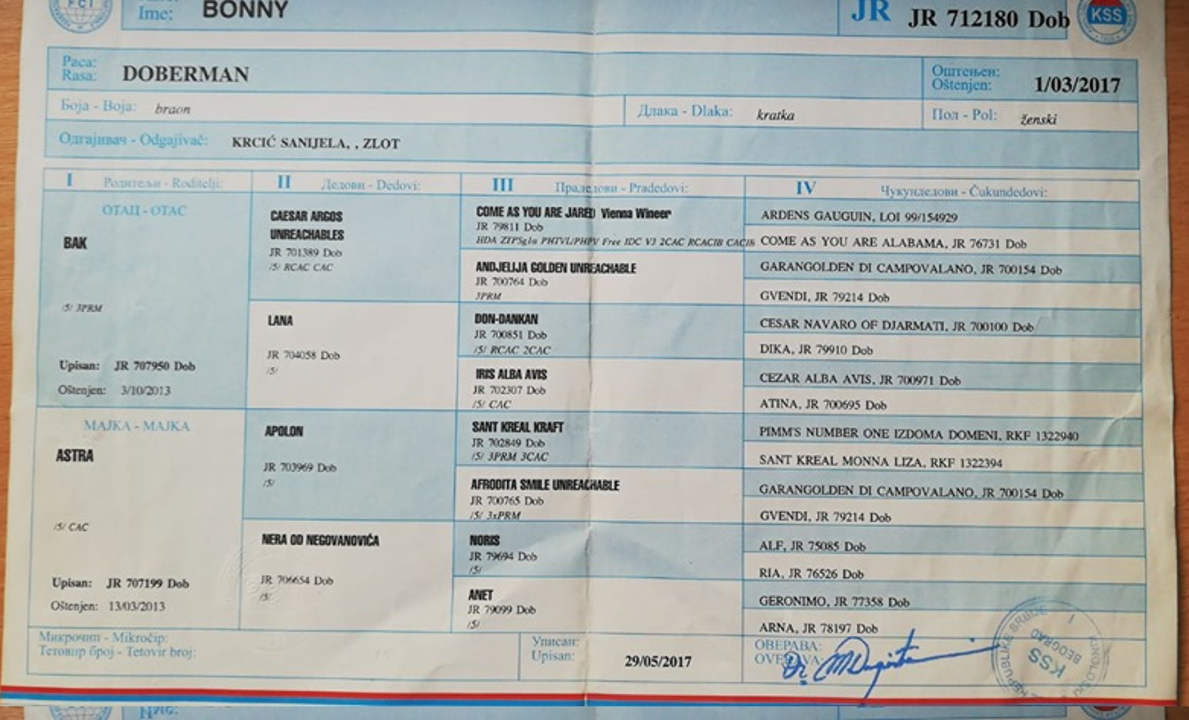 FCI
Ime: BONNY
JR JR 712180 Dob
KSS
Раса:
Rasa: DOBERMAN
Оштењен:
Oštenjen: 1/03/2017
Боја - Boja: braon
Длака - Dlaka: kratka
Пол - Pol: ženski
Одгајивач - Odgajivač: KRCIĆ SANIJELA, , ZLOT
I Родитељи - Roditelji:
II Дедови - Dedovi:
III Прадедови - Pradedovi:
IV Чукундедови - Čukundedovi:
ОТАЦ - OTAC
BAK
/5/ 3PRM
Upisan: JR 707950 Dob
Oštenjen: 3/10/2013
МАЈКА - MAJKA
ASTRA
/5/ CAC
Upisan: JR 707199 Dob
Oštenjen: 13/03/2013
CAESAR ARGOS
UNREACHABLES
JR 701389 Dob
/5/ RCAC CAC
LANA
JR 704058 Dob
/5/
APOLON
JR 703969 Dob
/5/
NERA OD NEGOVANOVIĆA
JR 706654 Dob
/5/
COME AS YOU ARE JARED Vienna Wineer
JR 79811 Dob
HDA ZTPSg1a PHTVL/PHPV Free IDC V3 2CAC RCACIB CACIB
ANDJELIJA GOLDEN UNREACHABLE
JR 700764 Dob
3PRM
DON-DANKAN
JR 700851 Dob
/5/ RCAC 2CAC
IRIS ALBA AVIS
JR 702307 Dob
/5/ CAC
SANT KREAL KRAFT
JR 702849 Dob
/5/ 3PRM 3CAC
AFRODITA SMILE UNREACHABLE
JR 700765 Dob
/5/ 3xPRM
NORIS
JR 79694 Dob
/5/
ANET
JR 79099 Dob
/5/
ARDENS GAUGUIN, LOI 99/154929
COME AS YOU ARE ALABAMA, JR 76731 Dob
GARANGOLDEN DI CAMPOVALANO, JR 700154 Dob
GVENDI, JR 79214 Dob
CESAR NAVARO OF DJARMATI, JR 700100 Dob
DIKA, JR 79910 Dob
CEZAR ALBA AVIS, JR 700971 Dob
ATINA, JR 700695 Dob
PIMM'S NUMBER ONE IZDOMA DOMENI, RKF 1322940
SANT KREAL MONNA LIZA, RKF 1322394
GARANGOLDEN DI CAMPOVALANO, JR 700154 Dob
GVENDI, JR 79214 Dob
ALF, JR 75085 Dob
RIA, JR 76526 Dob
GERONIMO, JR 77358 Dob
ARNA, JR 78197 Dob
Микрочип - Mikročip:
Тетовир број - Tetovir broj:
Уписан:
Upisan: 29/05/2017
ОВЕРАВА:
OVERAVA:
Dr
KSS
BEOGRAD
REPUBLIKE SRBIJE